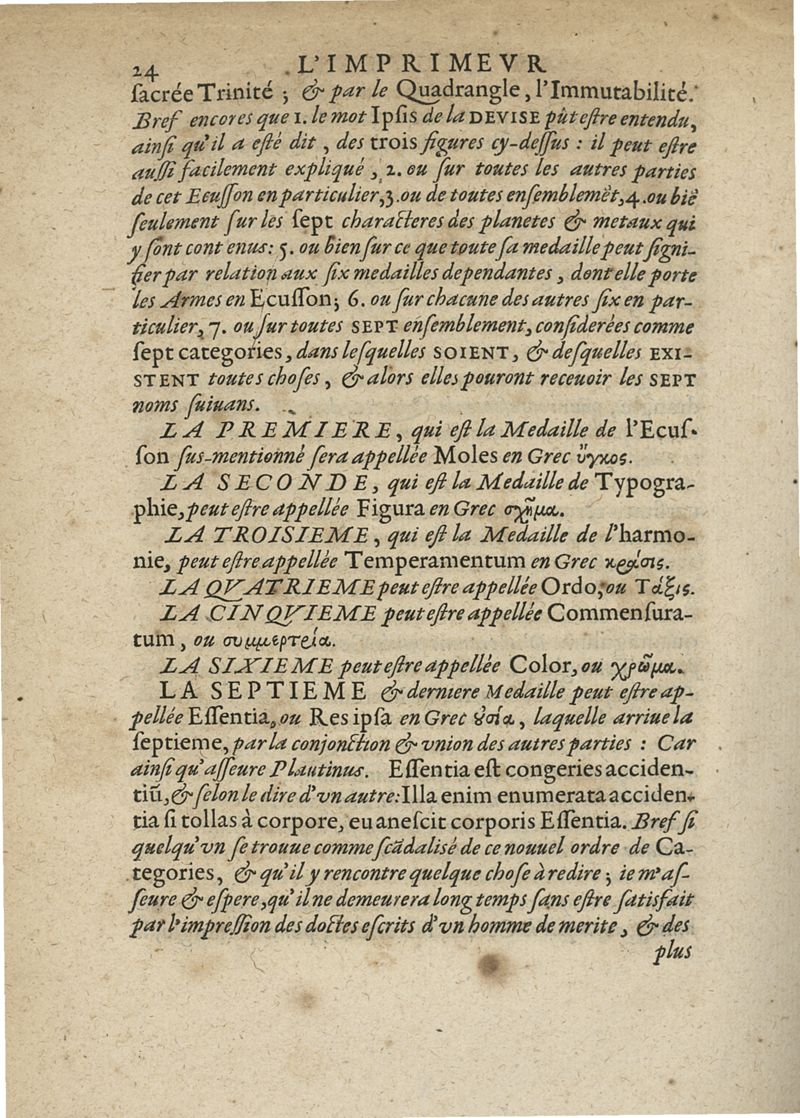 24 L'IMPRIMEVR
ſacrée Trinité ; & par le Quadrangle, l'Immutabilité.
Bref encores que 1. le mot Ipſis de la DEVISE pût eſtre entendu,
ainſi qu'il a eſté dit, des trois figures cy-deſſus : il peut eſtre
auſſi facilement expliqué, 2. ou ſur toutes les autres parties
de cet Ecuſſon en particulier, 3. ou de toutes enſemblemẽt, 4. ou biẽ
ſeulement ſur les ſept characteres des planetes & metaux qui
y ſont contenus: 5. ou bien ſur ce que toute ſa medaille peut ſigni-
fier par relation aux ſix medailles dependantes, dont elle porte
les Armes en Ecuſſon; 6. ou ſur chacune des autres ſix en par-
ticulier, 7. ou ſur toutes SEPT enſemblement, conſiderées comme
ſept categories, dans leſquelles SOIENT, & deſquelles EXI-
STENT toutes choſes, & alors elles pouront receuoir les SEPT
noms ſuiuans.
LA PREMIERE, qui eſt la Medaille de l'Ecuſ-
ſon ſus-mentionné ſera appellée Moles en Grec ὔγκος.
LA SECONDE, qui eſt la Medaille de Typogra-
phie, peut eſtre appellée Figura en Grec σχῆμα.
LA TROISIEME, qui eſt la Medaille de l'harmo-
nie, peut eſtre appellée Temperamentum en Grec κράσις.
LA QVATRIEME peut eſtre appellée Ordo, ou Τάξις.
LA CINQVIEME peut eſtre appellée Commenſura-
tum, ou συμμερτεία.
LA SIXIEME peut eſtre appellée Color, ou χρῶμα.
LA SEPTIEME & derniere Medaille peut eſtre ap-
pellée Eſſentia, ou Res ipſa en Grec ȣ̓σία, laquelle arriue la
ſeptieme, par la conjonction & vnion des autres parties : Car
ainſi qu'aſſeure Plautinus. Eſſentia eſt congeries acciden-
tiũ, & ſelon le dire d'vn autre: Illa enim enumerata acciden-
tia ſi tollas à corpore, euaneſcit corporis Eſſentia. Bref ſi
quelqu'vn ſe trouue comme ſcãdalisé de ce nouuel ordre de Ca-
tegories, & qu'il y rencontre quelque choſe à redire ; ie m'aſ-
ſeure & eſpere, qu'il ne demeurera long temps ſans eſtre ſatisfait
par l'impreſſion des doctes eſcrits d'vn homme de merite, & des
plus